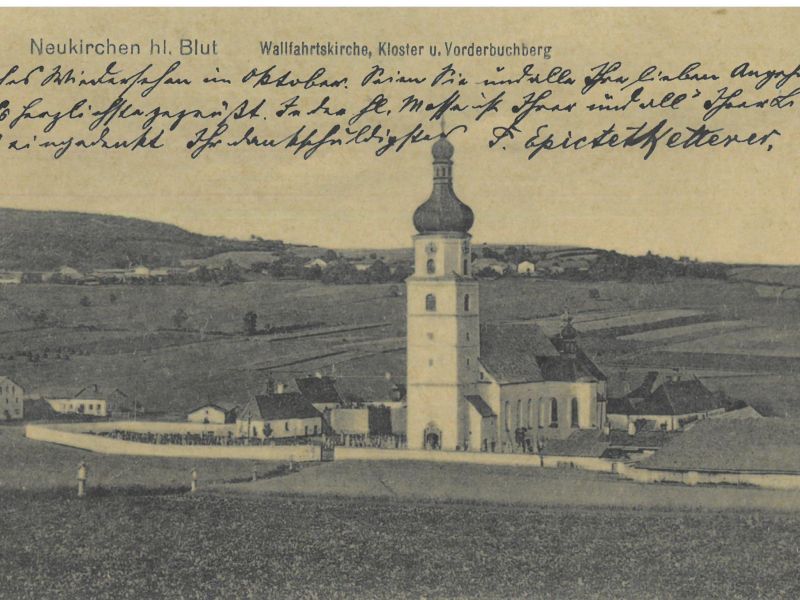 Neukirchen hl. Blut Wallfahrtskirche, Kloster u. Vorderbuchberg
Wiedersehen im Oktober. Seien Sie und alle Ihre lieben Angeh
herzlichst gegrüßt. In der hl. Messe ist Ihrer und all Ihrer
eingedenkt Ihr dankschuldigster F. Epictet Ketterer,